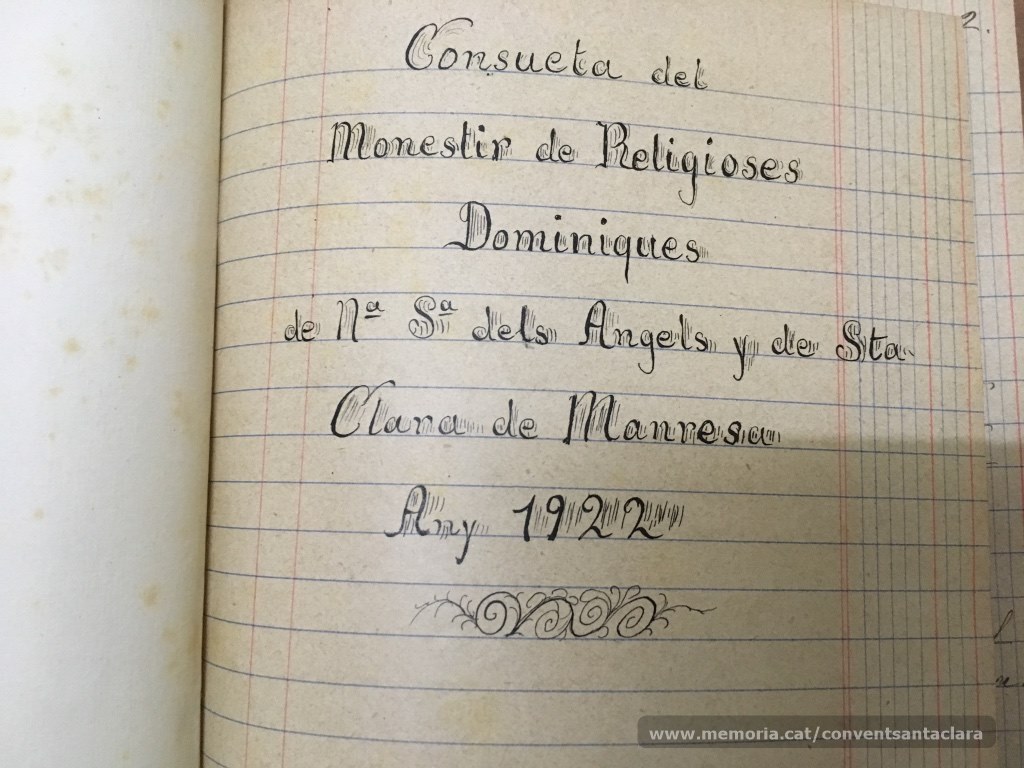 2.
Consueta del
Monestir de Religioses
Dominiques
de Nª Sª dels Angels y de Sta.
Clara de Manresa
Any 1922
www.memoria.cat/conventsantaclara